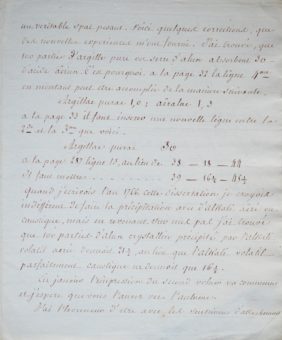 un veritable spat pesant. Voici quelques corrections, que
des nouvelles experiences m'ont fourni. J'ai trouvé, que
100 parties d'argille pure en terre d'alun absorbent 30
d'acide aérien. C'est pourquoi a la page 32 la ligne 4me
en montant peut être accomplie de la maniere suivante.
Argillae purae 1,0; airatae 1,3
a la page 33 il faut inserer une nouvelle ligne entre la
2de et la 3me que voici.
Argillae purae
a la page 287 ligne 10, au lieu de 38 — 18 — 44
Il faut mettre 39 — 16½ —
Quand j'ecrivois l'an 1766 cette dissertation je croyois
indifferent de faire la précipitation avec d'alkali aéré ou
caustique, mais en revenant j'ai trouvé,
que 100 parties d'alun crystallisé précipité par l'alkali
volatil aéré donnoit au lieu que l'alkali volatil
parfaitement caustique ne donnoit que 16½.
Ce janvier l'impression du second volume va commencer
et j'espere que vous l'aurez vers
J'ai l'honneur d'etre avec les sentimens d'attachement